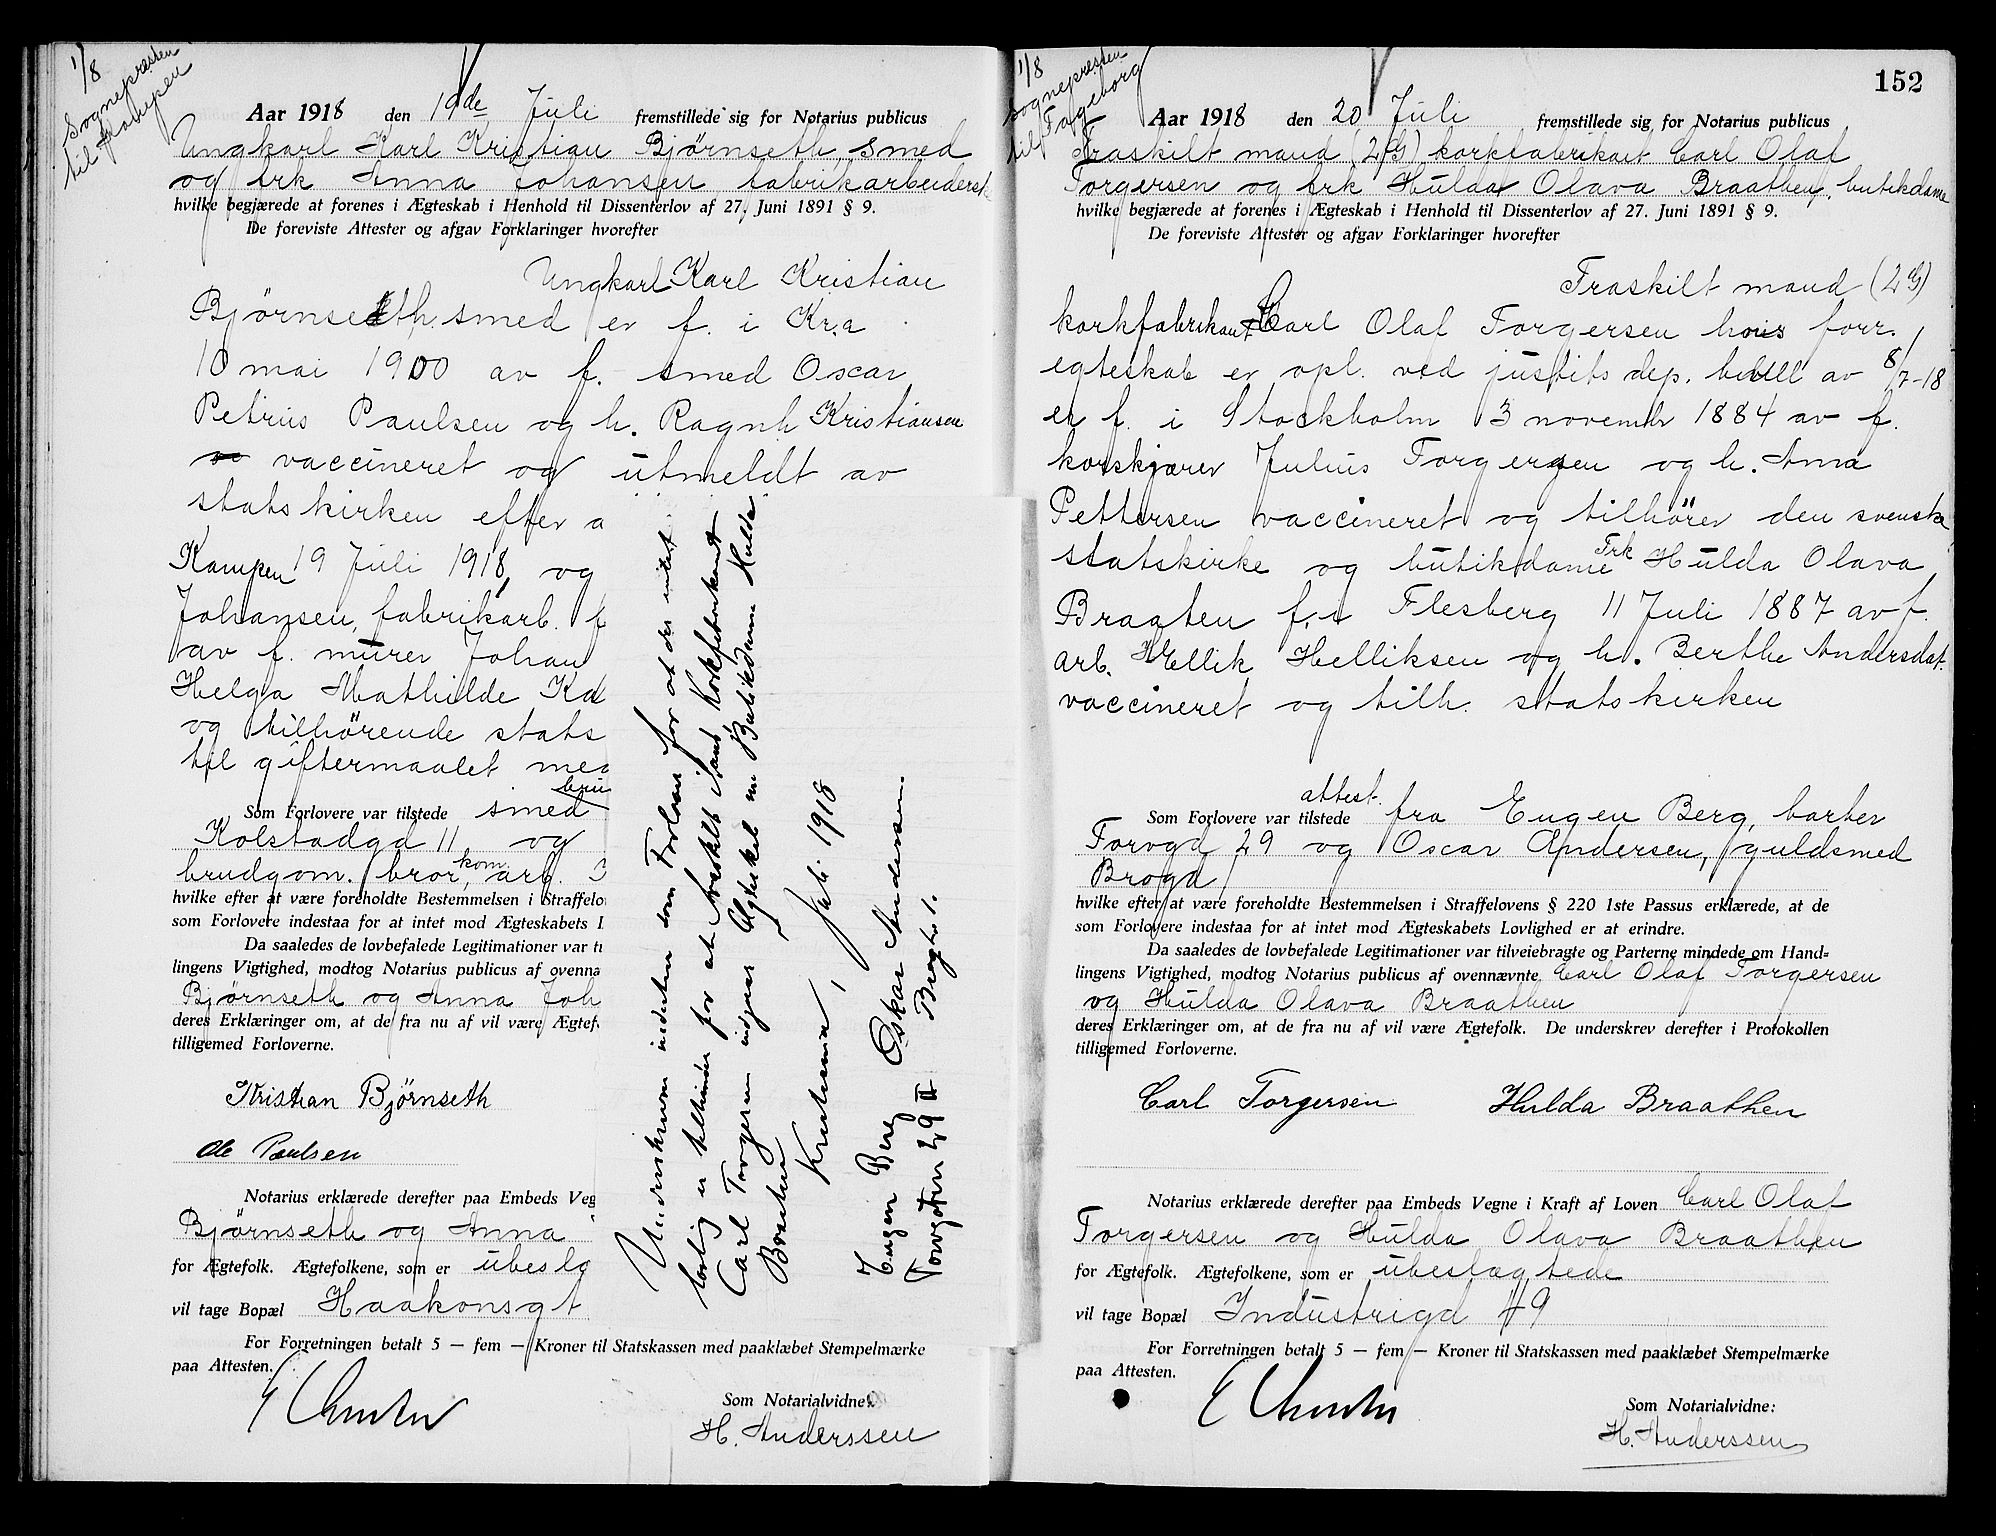 1/8
Sognepresten
til Kampen
Aar 1918 den 19de Juli fremstillede sig for Notarius publicus
Ungkarl Karl Kristian Bjørnseth, smed
og frk Anna Johansen, fabrikarbeiderske
hvilke begjærede at forenes i Ægteskab i Henhold til Dissenterlov af 27. Juni 1891 § 9.
De foreviste Attester og afgav Forklaringer hvorefter
Ungkarl Karl Kristian
Bjørnseth, smed er f. i Kr.a
10 mai 1900 av f. smed Oscar
Petrus Paulsen og h. Ragnh Kristiansen
vaccineret og utmeldt av
statskirken efter a
Kampen 19 Juli 1918, og
Johansen, fabrikarb. f
av f. murer Johan
Helga Mathilde Ka
og tilhörende stats
til giftermaalet med
bru
Som Forlovere var tilstede smed
Kolstadgd 11 og
brudgom. bror, kom. arb.
hvilke efter at være foreholdte Bestemmelsen i Straffelo
som Forlovere indestaa for at intet mod Ægteskabets L
Da saaledes de lovbefalede Legitimationer var ti
lingens Vigtighed, modtog Notarius publicus af ovennæ
Bjørnseth og Anna Joh
deres Erklæringer om, at de fra nu af vil være Ægtef
tilligemed Forloverne.
Kristian Bjørnseth
Ole Paulsen
Notarius erklærede derefter paa Embeds Veg
Bjørnseth og Anna
for Ægtefolk. Ægtefolkene, som er ubeslæ
vil tage Bopæl Haakonsgt
For Forretningen betalt 5 — fem — Kroner til Statskassen med paaklæbet Stempelmærke
paa Attesten.
Som Notarialvidne:
H. Anderssen
Underskrevne indestaa som Forlover for at der intet
lovlig er tilhinder for at fraskilt mand Korkfabrikant
Carl Torgersen indgaar Ægteskab m Butikdame Hulda
Braathen
Kristiania, Juli 1918
Eugen Berg Oskar Andersen.
Torvgaten 29 II Brogt 1.
152
1/8
Sognepresten
til Fageborg
Aar 1918 den 20 Juli fremstillede sig for Notarius publicus
Fraskilt mand (2G) korkfabrikant Carl Olaf
Torgersen og frk Hulda Olava Braathen, butikdame
hvilke begjærede at forenes i Ægteskab i Henhold til Dissenterlov af 27. Juni 1891 § 9.
De foreviste Attester og afgav Forklaringer hvorefter
Fraskilt mand (2G)
korkfabrikant Carl Olaf Torgersen hvis forr.
egteskab er opl. ved justits dep. bevill av 8/7-18
er f. i Stockholm 3 novembr 1884 av f.
korskjærer Julius Torgersen og h. Anna
Pettersen vaccineret og tilhörer den svenske
statskirke og butikdame Frk Hulda Olava
Braaten f. i Flesberg 11 Juli 1887 av f.
arb. Hellik Helliksen og h. Berthe Andersdat.
vaccineret og tilh. statskirken
attest.
Som Forlovere var tilstede fra Eugen Berg, barber
Torvgd 29 og Oscar Andersen, guldsmed
Brogd
hvilke efter at være foreholdte Bestemmelsen i Straffelovens § 220 1ste Passus erklærede, at de
som Forlovere indestaa for at intet mod Ægteskabets Lovlighed er at erindre.
Da saaledes de lovbefalede Legitimationer var tilveiebragte og Parterne mindede om Hand-
lingens Vigtighed, modtog Notarius publicus af ovennævnte Carl Olaf Torgersen
og Hulda Olava Braathen
deres Erklæringer om, at de fra nu af vil være Ægtefolk. De underskrev derefter i Protokollen
tilligemed Forloverne.
Carl Torgersen Hulda Braathen
Notarius erklærede derefter paa Embeds Vegne i Kraft af Loven Carl Olaf
Torgersen og Hulda Olava Braathen
for Ægtefolk. Ægtefolkene, som er ubeslægtede
vil tage Bopæl Industrigd 49
For Forretningen betalt 5 — fem — Kroner til Statskassen med paaklæbet Stempelmærke
paa Attesten.
Som Notarialvidne:
H. Anderssen